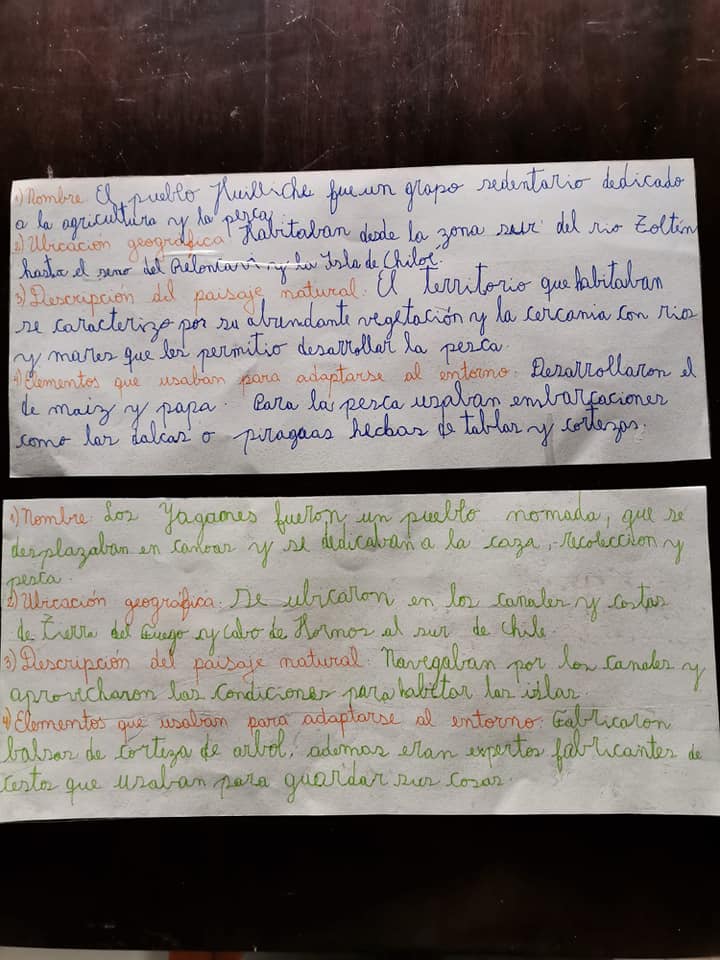 1) Nombre El pueblo Huilliche fue un grupo sedentario dedicado
a la agricultura y la pesca.
2) Ubicación geográfica Habitaban desde la zona sur del rio Toltén
hasta el seno del Reloncaví y la Isla de Chiloé.
3) Descripción del paisaje natural. El territorio que habitaban
se caracterizo por su abundante vegetación y la cercania con rios
y mares que les permitio desarrollar la pesca.
4) Elementos que usaban para adaptarse al entorno. Desarrollaron el
de maiz y papa. Para la pesca usaban embarcaciones
como las dalcas o piraguas hechas de tablas y cortezas.
1) Nombre: Los Yaganes fueron un pueblo nomada, que se
desplazaban en canoas y se dedicaban a la caza, recoleccion y
pesca.
2) Ubicación geográfica: Se ubicaron en los canales y costas
de Tierra del Fuego y Cabo de Hornos al sur de Chile.
3) Descripción del paisaje natural: Navegaban por los canales y
aprovecharon las condiciones para habitar las islas.
4) Elementos que usaban para adaptarse al entorno: Fabricaron
balsas de corteza de arbol, ademas eran expertos fabricantes de
cestos que usaban para guardar sus cosas.